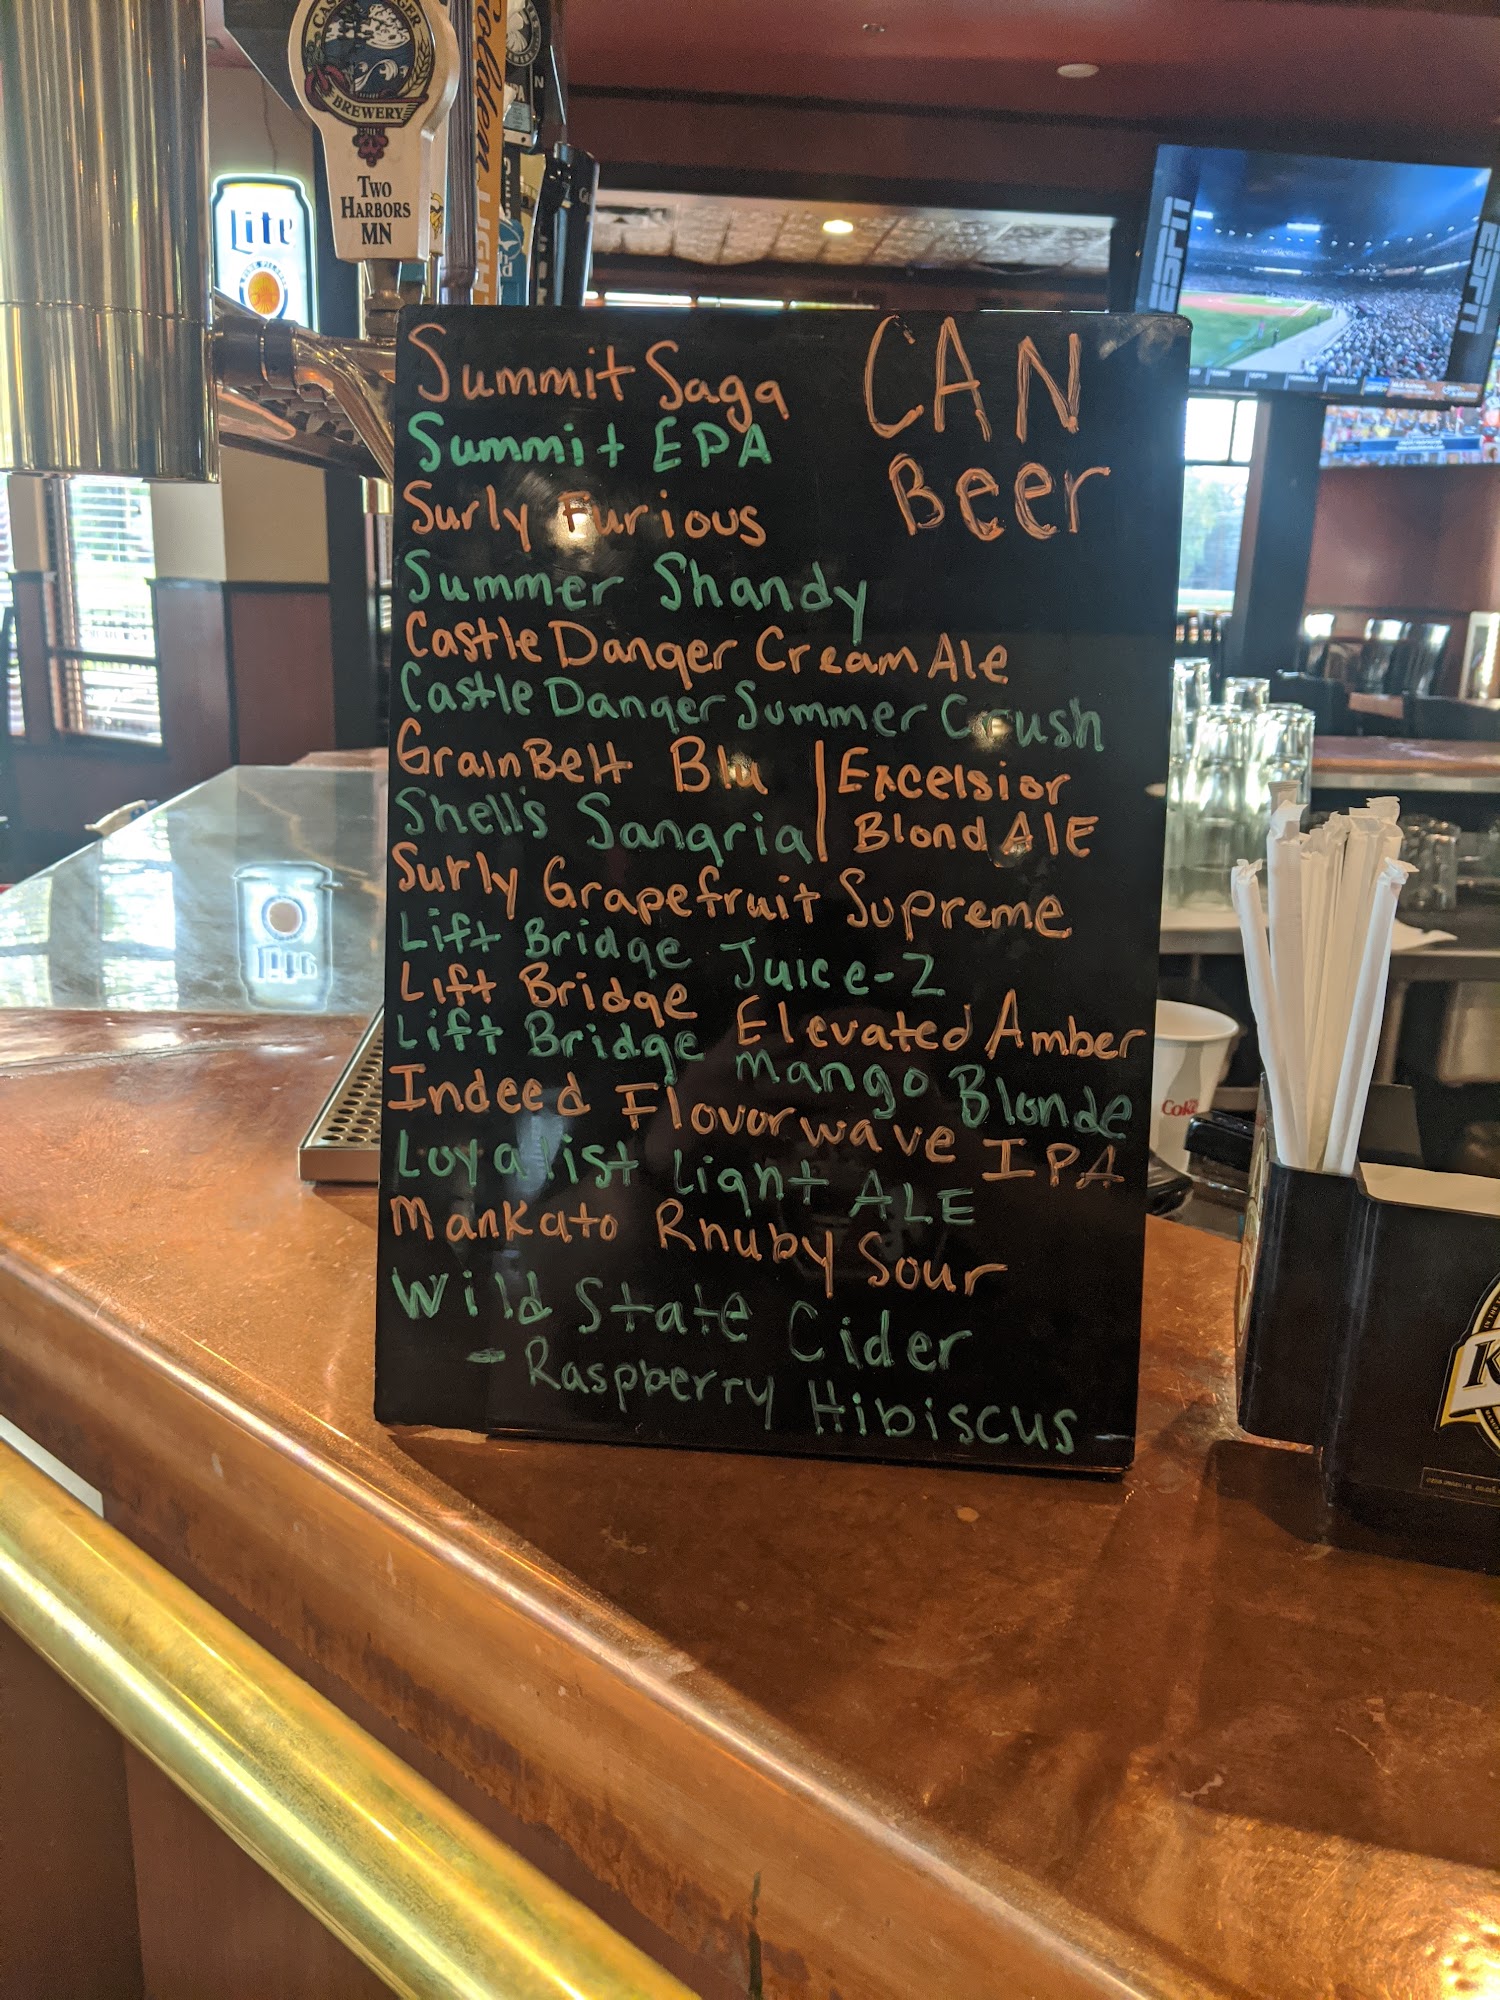 CASTLE DANGER
BREWERY
TWO
HARBORS
MN
Golden LIGHT
Lite
ESPN
ESPN
CAN
Beer
Summit Saga
Summit EPA
Surly Furious
Summer Shandy
Castle Danger Cream Ale
Castle Danger Summer Crush
GrainBelt Blu | Excelsior
Shell's Sangria | Blond AlE
Surly Grapefruit Supreme
Lift Bridge Juice-Z
Lift Bridge Elevated Amber
Lift Bridge Mango Blonde
Indeed Flovorwave IPA
Loyalist Light ALE
Mankato Rhuby Sour
Wild State Cider
- Raspberry Hibiscus
Coke
K